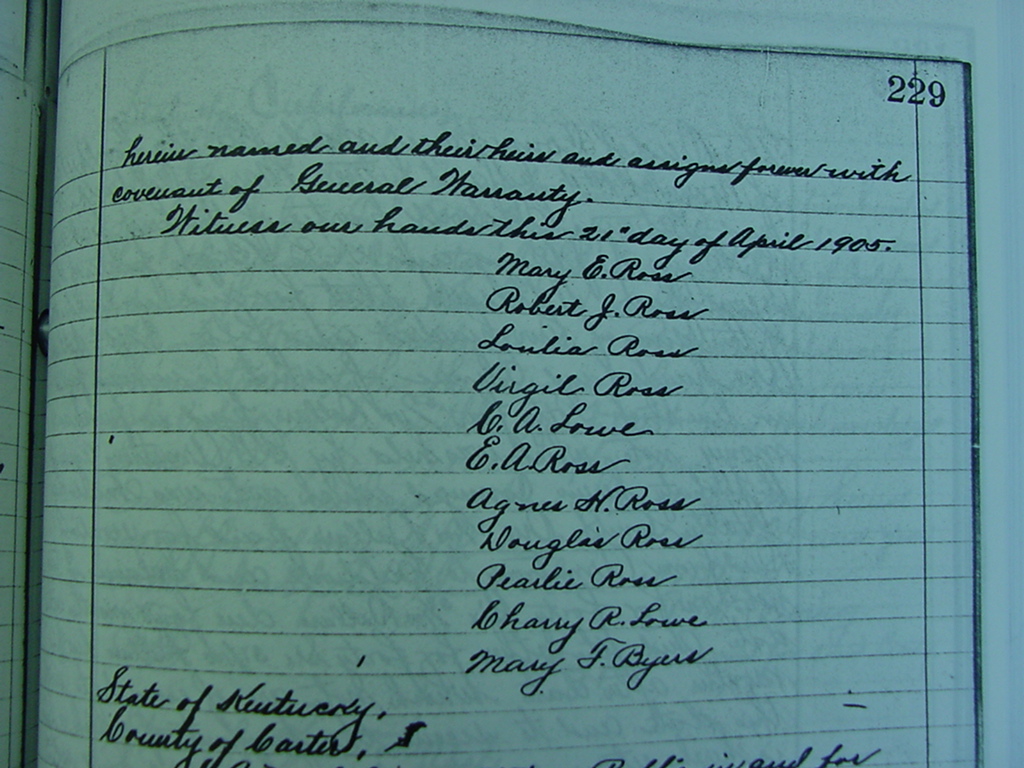 229
herein named and their heirs and assigns forever with
covenant of General Warranty.
Witness our hands this 21" day of April 1905.
Mary E. Ross
Robert J. Ross
Loulia Ross
Virgil Ross
C. A. Lowe
E. A. Ross
Agnes H. Ross
Douglas Ross
Pearlie Ross
Charry R. Lowe
Mary F. Byers
State of Kentucky,
County of Carter,
Public in and for